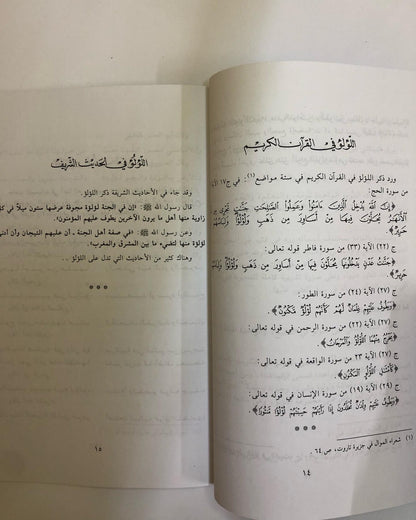 اللؤلؤ في القرآن الكريم
ورد ذكر اللؤلؤ في القرآن الكريم في ستة مواضع(١). في ج١٧
من سورة الحج:
﴿إِنَّ اللَّهَ يُدْخِلُ الَّذِينَ ءَامَنُوا وَعَمِلُوا الصَّالِحَاتِ جَنَّاتٍ تَجْرِى
الْأَنْهَارُ يُحَلَّوْنَ فِيهَا مِنْ أَسَاوِرَ مِن ذَهَبٍ وَلُؤْلُؤًا
حَرِيرٌ﴾.
ج (٢٢) الآية (٣٣) من سورة فاطر قوله تعالى:
﴿جَنَّاتُ عَدْنٍ يَدْخُلُونَهَا يُحَلَّوْنَ فِيهَا مِنْ أَسَاوِرَ مِن ذَهَبٍ وَلُؤْلُؤًا وَلِبَاسُهُمْ
حَرِيرٌ﴾.
ج (٢٧) الآية (٢٤) من سورة الطور:
﴿وَيَطُوفُ عَلَيْهِمْ غِلْمَانٌ لَّهُمْ كَأَنَّهُمْ لُؤْلُؤٌ مَّكْنُونٌ﴾.
ج (٢٧) الآية (٢٢) من سورة الرحمن في قوله تعالى:
﴿يَخْرُجُ مِنْهُمَا اللُّؤْلُؤُ وَالْمَرْجَانُ﴾.
ج (٢٧) الآية ٢٣ من سورة الواقعة في قوله تعالى:
﴿كَأَمْثَالِ اللُّؤْلُؤِ الْمَكْنُونِ﴾.
ج (٢٩) الآية (١٩) من سورة الإنسان في قوله تعالى:
﴿وَيَطُوفُ عَلَيْهِمْ وِلْدَانٌ مُّخَلَّدُونَ إِذَا رَأَيْتَهُمْ حَسِبْتَهُمْ لُؤْلُؤًا مَّنثُورًا﴾.
* * *
(١) شعراء الموال في جزيرة تاروت، ص ٦٤.
١٤
اللؤلؤ في الحديث الشريف
وقد جاء في الأحاديث الشريفة ذكر اللؤلؤ
قال رسول الله ﷺ: «إن في الجنة لؤلؤة مجوفة عرضها ستون ميلاً في كل
زاوية منها أهل ما يرون الآخرين يطوف عليهم المؤمنون».
وعن رسول الله ﷺ: «في صفة أهل الجنة ـ أن عليهم التيجان وأن أدنى
لؤلؤة منها لتضيء ما بين المشرق والمغرب».
وهناك كثير من الأحاديث التي تدل على اللؤلؤ ..
* * *
١٥